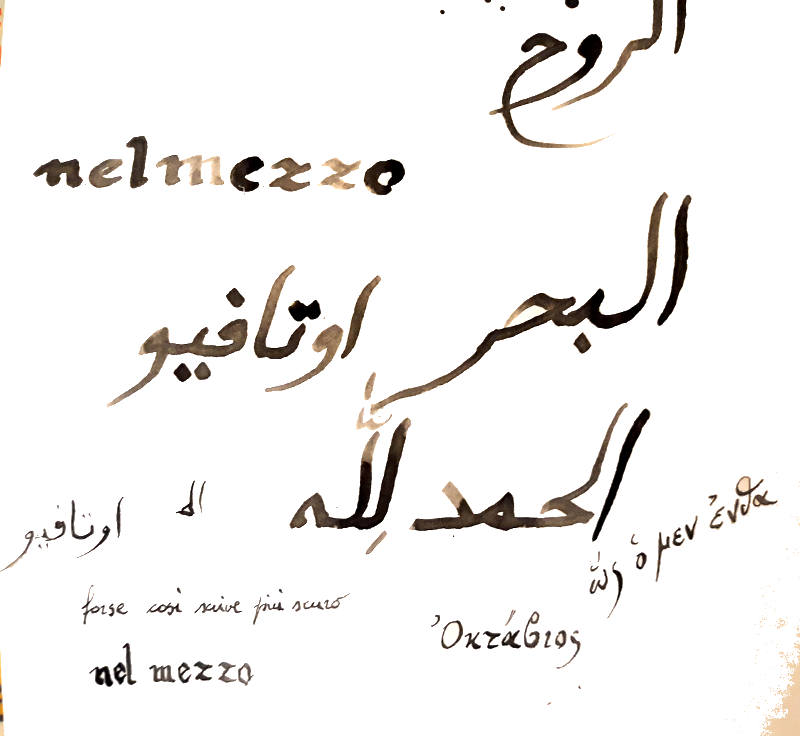 الروح
nel mezzo
البحر
اوتافيو
الحمد لله
اوتافيو
ὥς ὁ μεν ἔνθα
forse così scrive più scuro
Ὀκτάβιος
nel mezzo